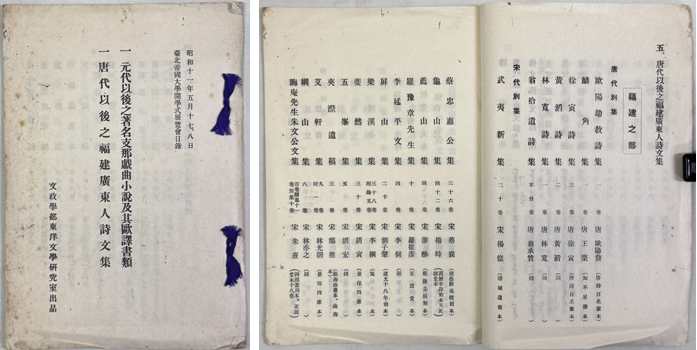 昭和十一年五月十七、八日
臺北帝國大學開學式展覽會目錄
一 元代以後之著名支那戲曲小說及其歐譯書類
一 唐代以後之福建廣東人詩文集
文政學部東洋文學研究室出品
五、唐代以後之福建廣東人詩文集
福建之部
唐代別集
歐陽助教詩集 一卷 唐 歐陽詹 (唐詩百名家本)
麟角集 一卷 唐 王棨 (知不足齋本)
徐寅詩集 唐 徐寅 (唐詩百名家本)
黃滔詩集 唐 黃滔 (同)
林寬詩集 一卷 唐 林寬 (同)
翁拾遺詩集 不分卷 唐 翁承贊 (同)
宋代別集
武夷新集 二十卷 宋 楊億
蔡忠惠公集 三十六卷 宋 蔡襄
龜山集 四十二卷 宋 楊時
薦山集 四卷 宋 游酢
羅豫章先生集 十卷 宋 羅從彥
李延平文集 四卷 宋 李侗
屏山集 二十卷 宋 劉子翬
梁溪集 宋 李綱
斐然集 三十卷 宋 胡寅
五峯集 五卷 宋 胡宏
夾漈遺稿 三卷 宋 鄭樵
艾軒集 九卷 宋 林光朝
網山集 八卷 宋 林亦之
晦庵先生朱文公文集 宋 朱熹